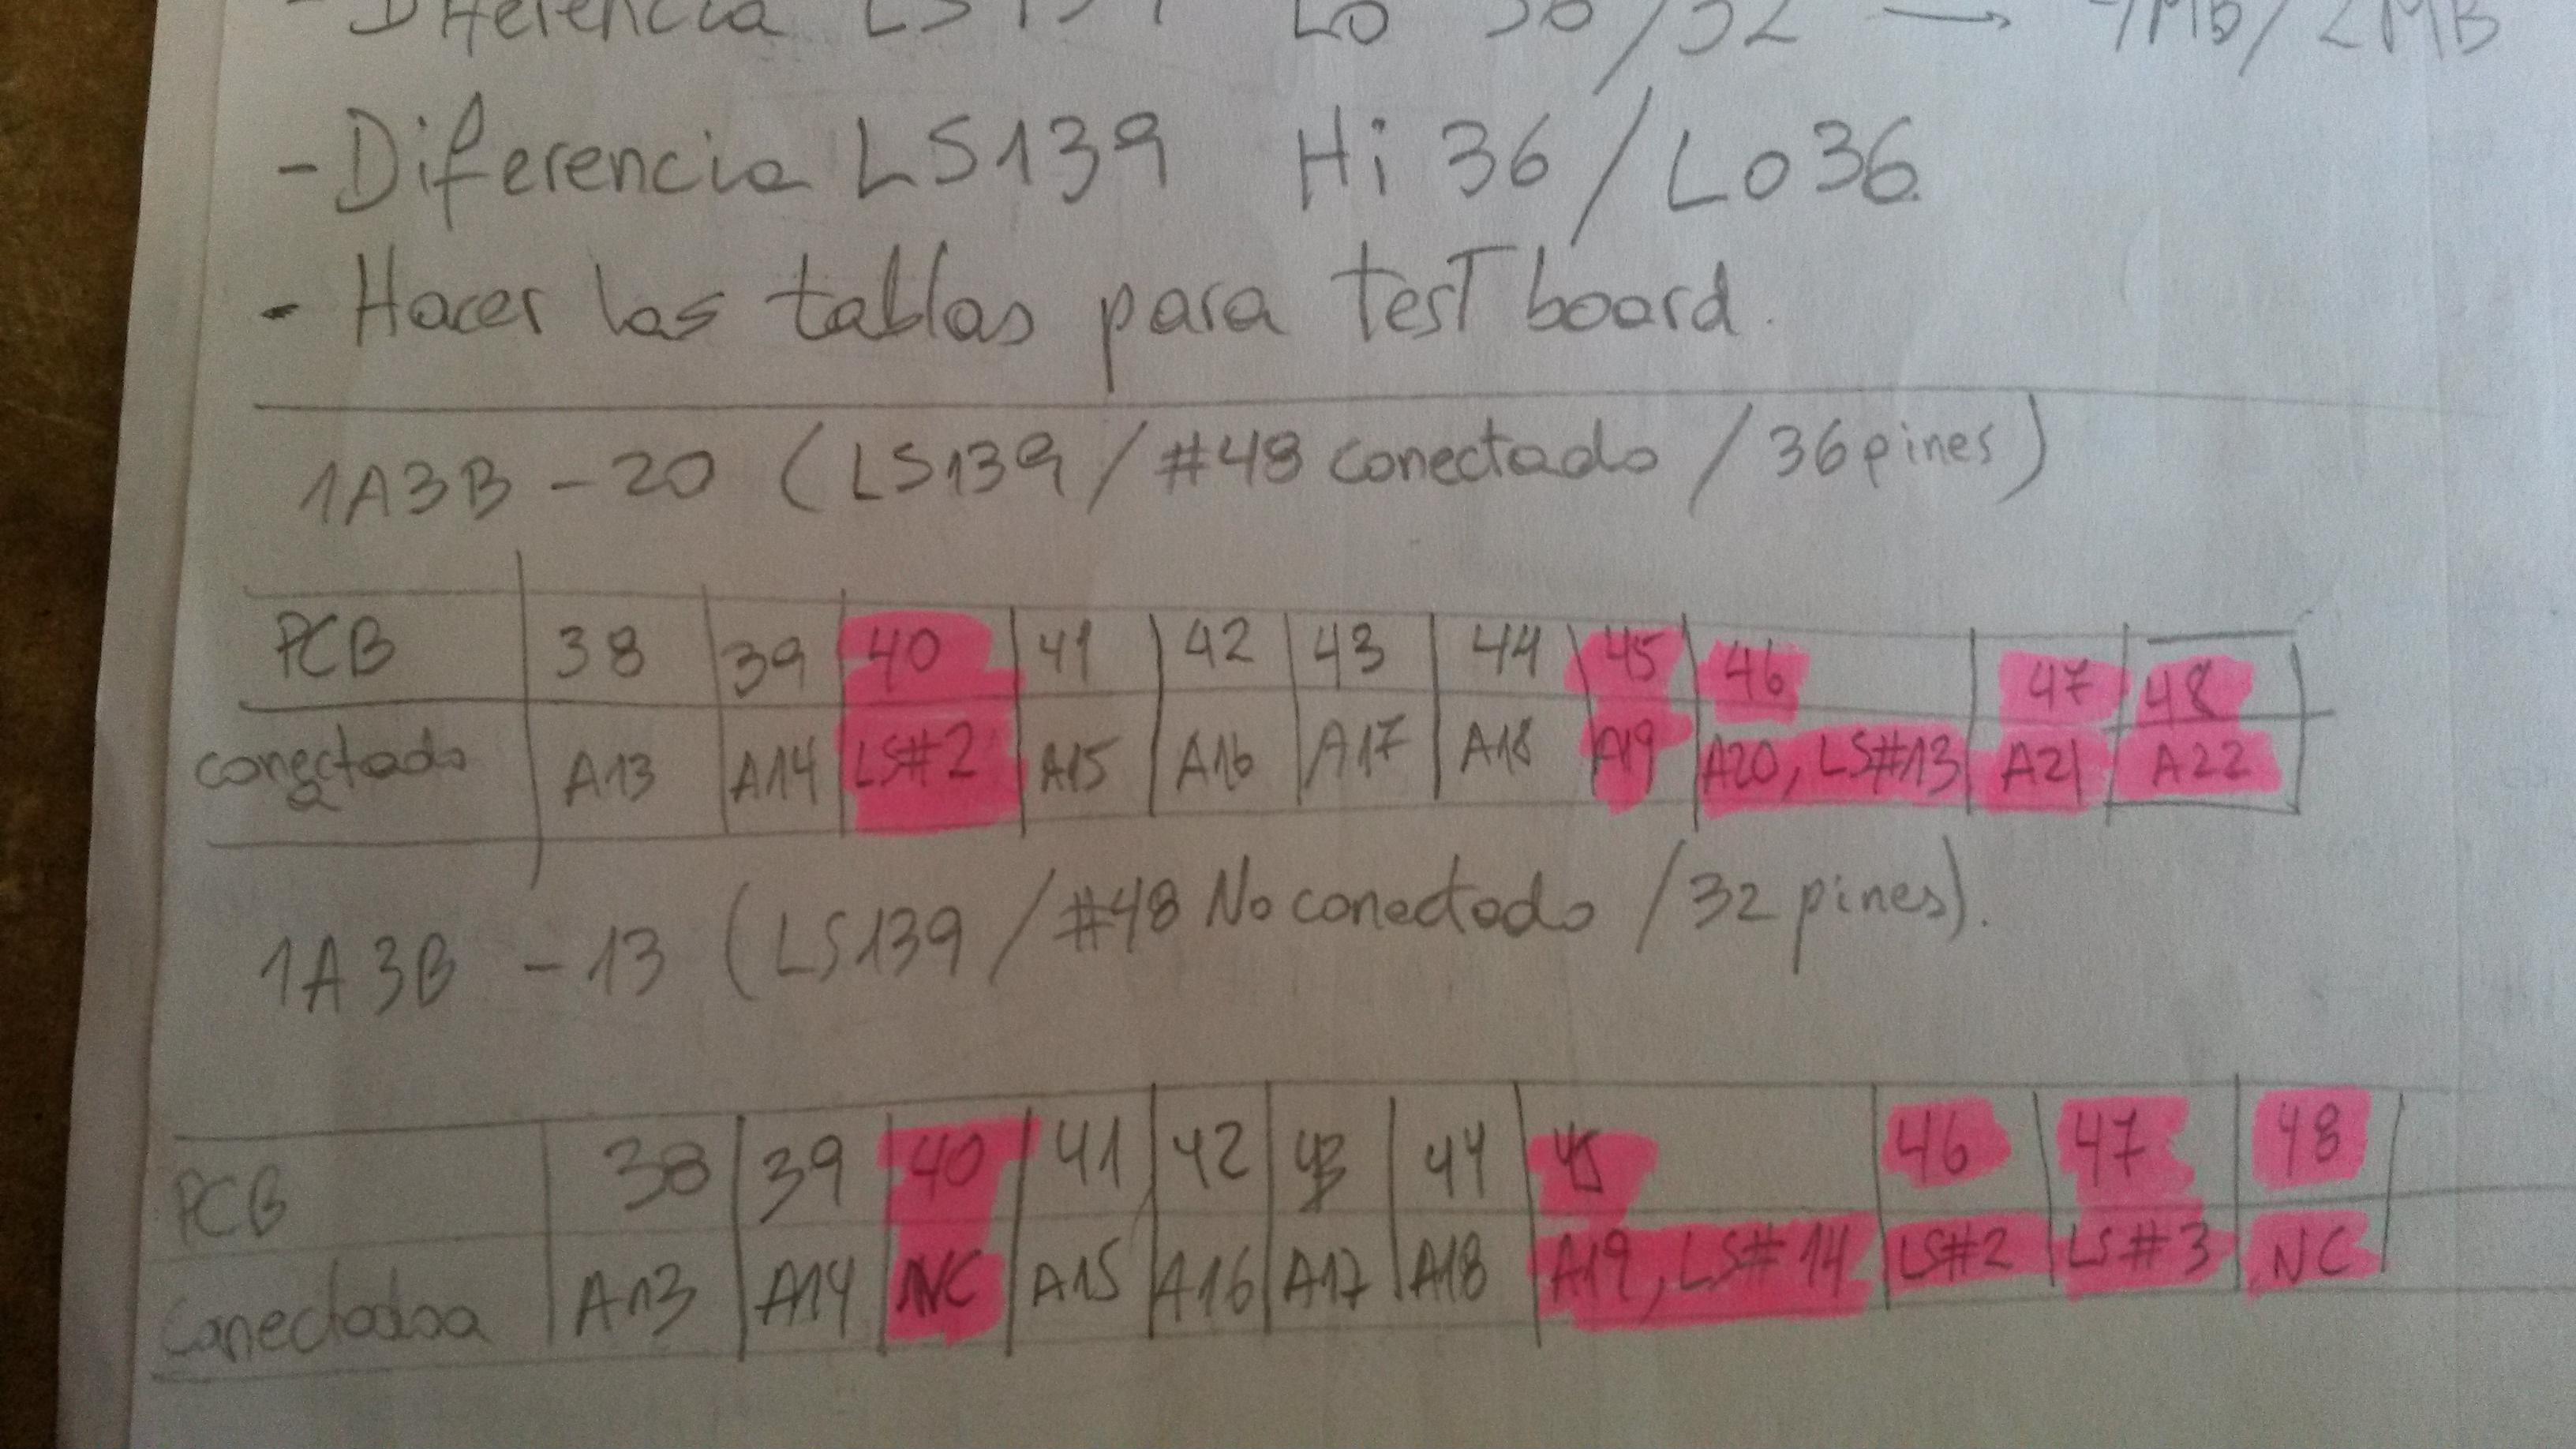 - Diferencia LS139 Lo 36/32 → 4MB/2MB
- Diferencia LS139 Hi 36/Lo36.
- Hacer las tablas para test board.
1A3B - 20 (LS139 / #48 conectado / 36 pines)
PCB 38 39 40 41 42 43 44 45 46 47 48
conectado a A13 A14 LS#2 A15 A16 A17 A18 A19 A20, LS#13 A21 A22
1A3B - 13 (LS139 / #48 No conectado / 32 pines).
PCB 38 39 40 41 42 43 44 45 46 47 48
conectado a A13 A14 NC A15 A16 A17 A18 A19, LS#14 LS#2 LS#3 NC